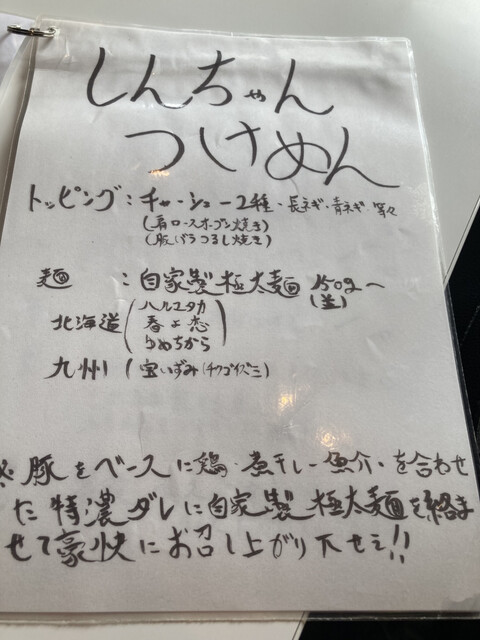 しんちゃん
つけめん
トッピング：チャーシュー2種・長ネギ・青ネギ・等々
(肩ロースオーブン焼き)
(豚バラつるし焼き)
麺 ：自家製極太麺 150g〜
(並)
北海道(ハルユタカ
春よ恋
ゆめちから)
九州(宝いずみ(チクゴイズミ)
※豚をベースに鶏・煮干し・魚介・を合わせ
た特濃ダレに自家製極太麺を絡ま
せて豪快にお召し上がり下せえ!!